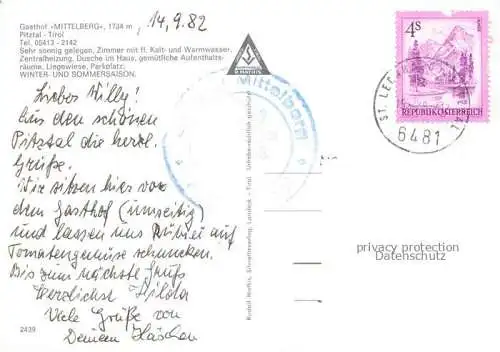 Gasthof »MITTELBERG«, 1734 m
Pitztal - Tirol
Tel. 05413 - 2142
Sehr sonnig gelegen, Zimmer mit fl. Kalt- und Warmwasser,
Zentralheizung, Dusche im Haus, gemütliche Aufenthalts-
räume, Liegewiese, Parkplatz.
WINTER- UND SOMMERSAISON.
14.9.82
Lieber Willy!
Aus den schönen
Pitztal die herzl.
Grüße.
Wir sitzen hier vor
dem Gasthof (umseitig)
und lassen uns auf
Tomatengemüse schmecken.
Bis zum nächste Gruß
Herzlichst Hilda
Viele Grüße von
Deinem Häschen
2439
Mittelberg
Rudolf Mathis, Landeck - Tirol. Urheberrechtlich geschützt
R. MATHIS
4S
REPUBLIK ÖSTERREICH
6481
privacy protection
Datenschutz